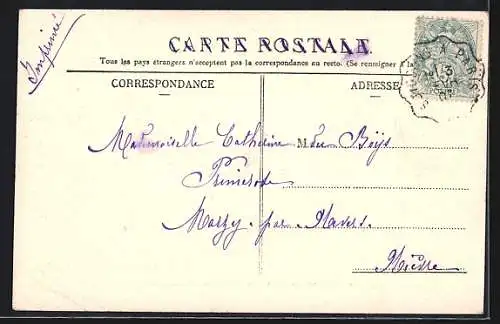 Imprimé
CARTE POSTALE
Tous les pays étrangers n'acceptent pas la correspondance au recto. (Se renseigner à la
CORRESPONDANCE
ADRESSE
Mademoiselle Catherine M du Boÿs
Marzy. par. Nevers.
Nièvre